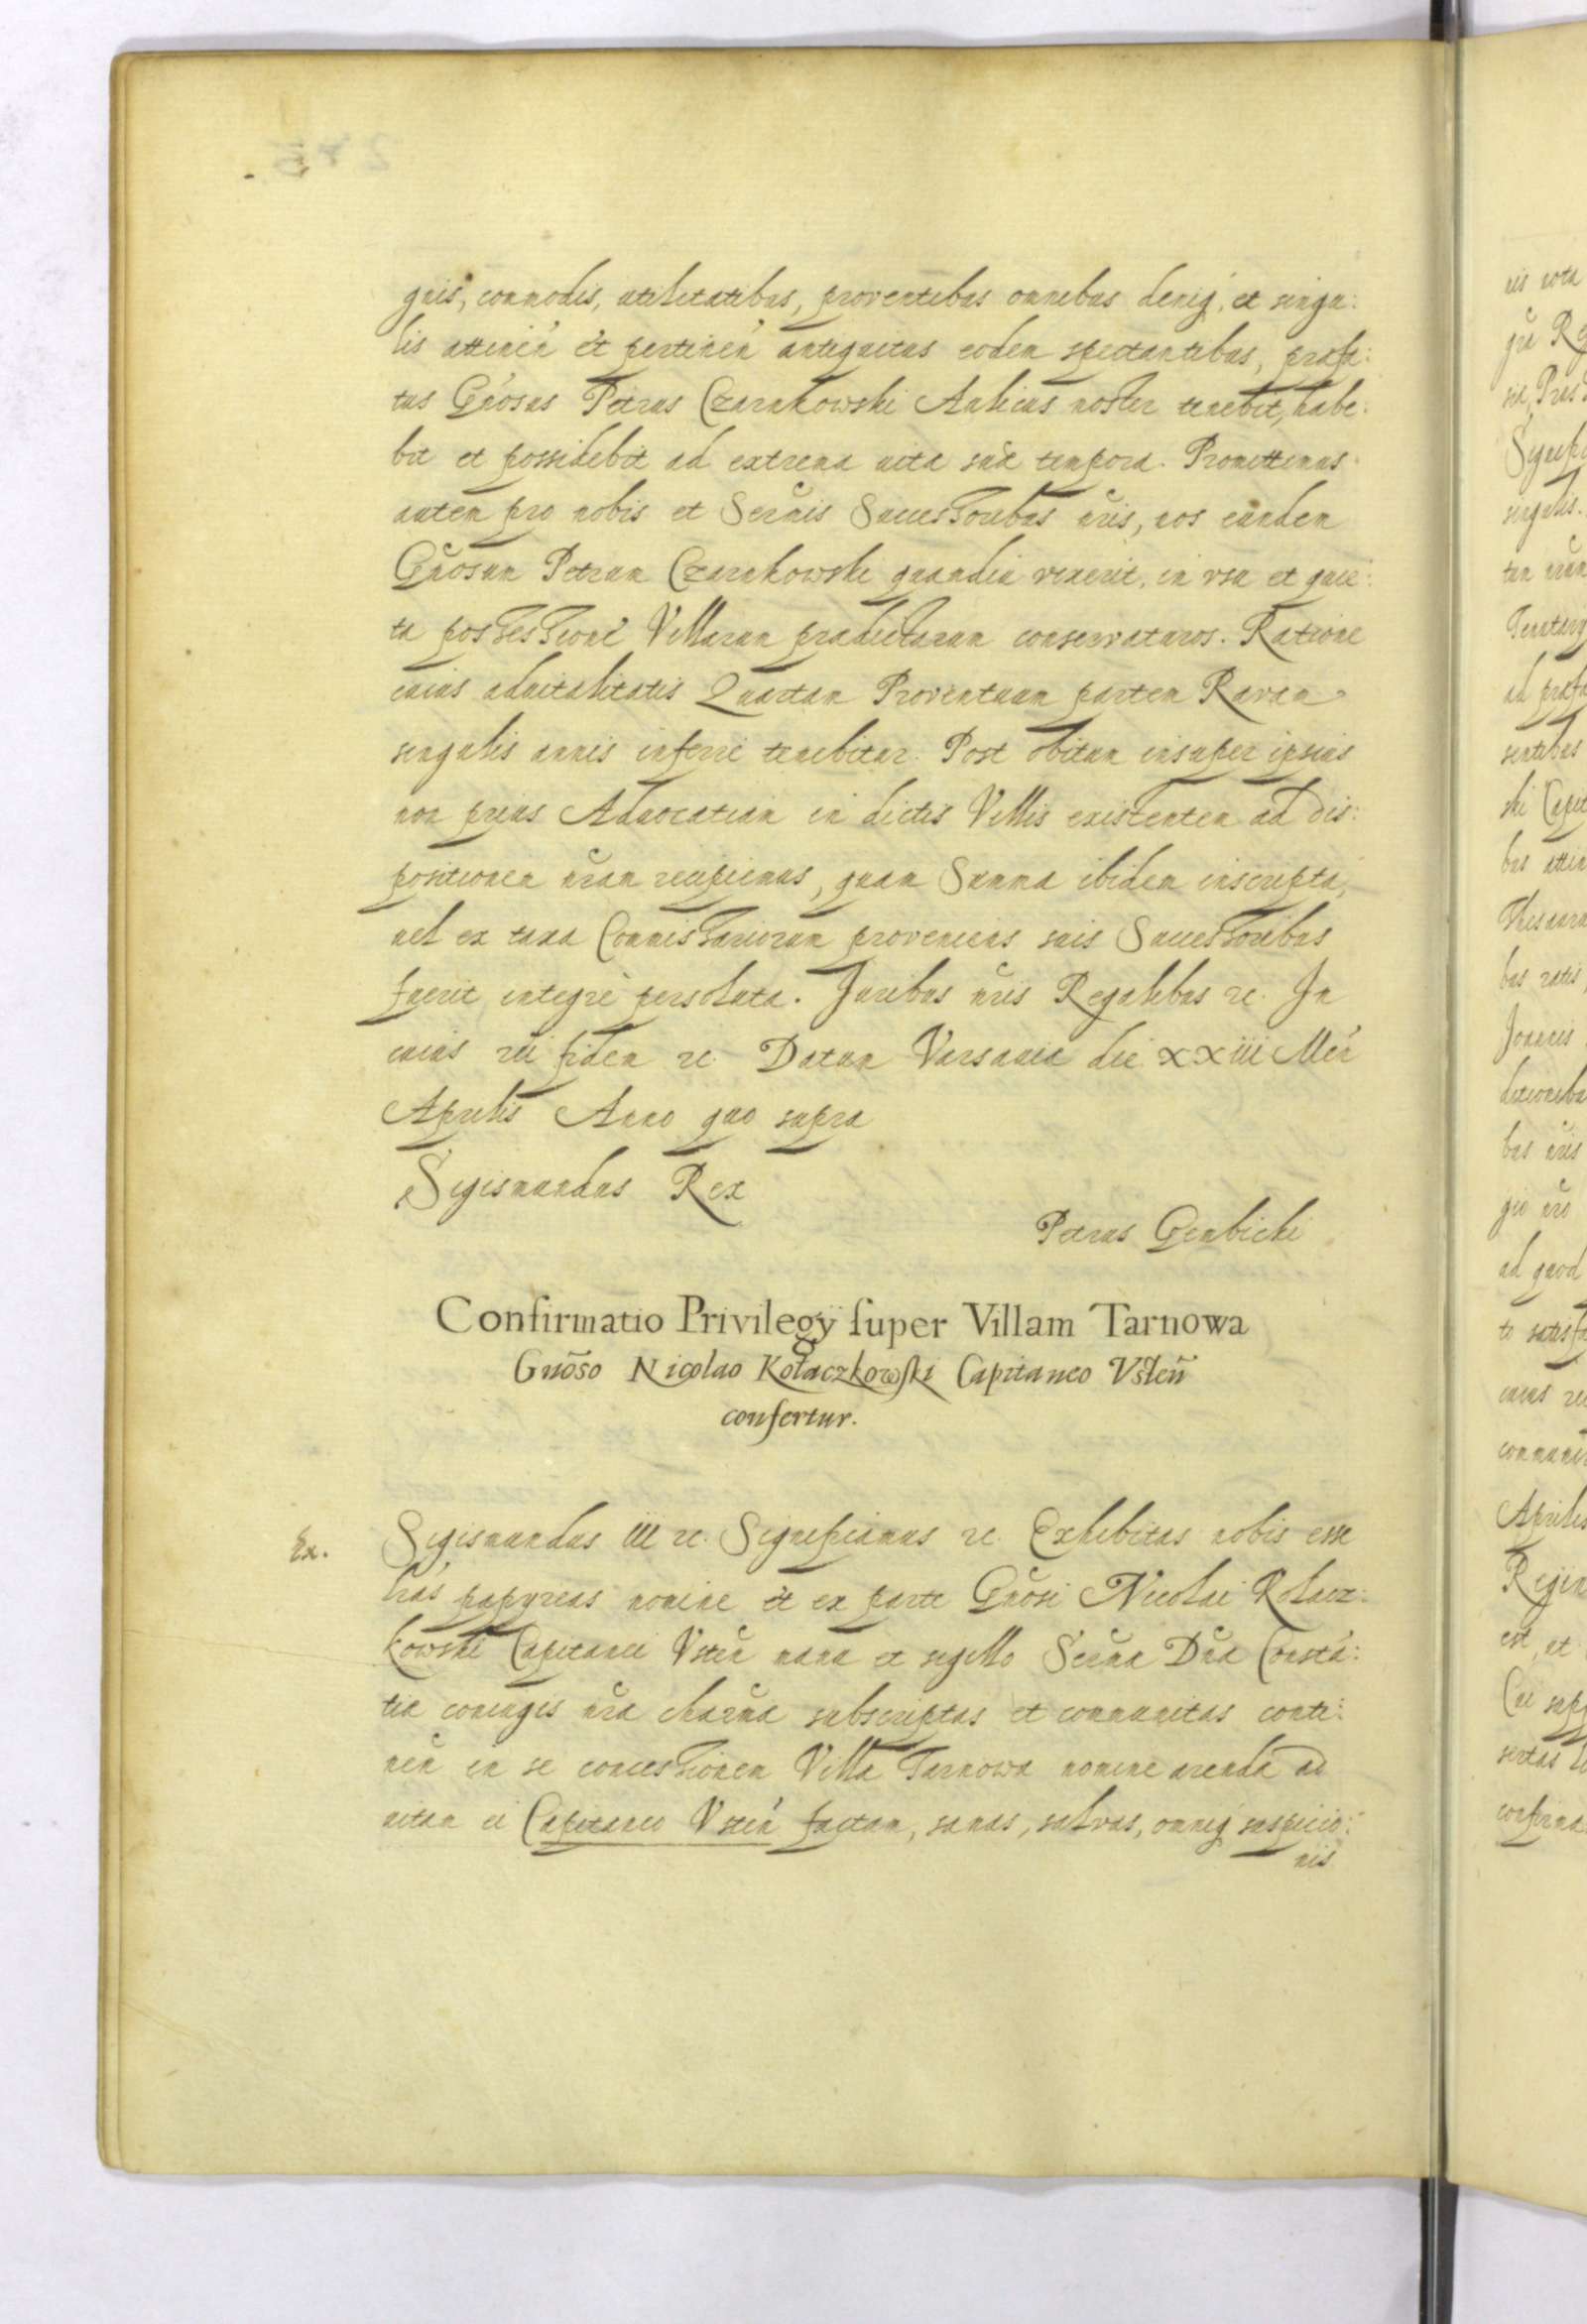 guis, commodis, utilitatibus, proventibus omnibus deniq, et singu:
lis attineñ et pertineñ antiquitus eodem spectantibus, præfa:
tus Gñosus Petrus Czarnkowski Aulicus noster tenebit, habe:
bit et possidebit ad extrema uitæ suæ tempora. Promittimus
autem pro nobis et Serñis Successoribus ñris, nos eundem
Gñosum Petrum Czarnkowski quamdiu vixerit, in vsu et quie:
ta possessione Villarum prædictarum conservaturos. Ratione
cuius aduitalitatis Quartam Proventuum partem Ravam
singulis annis inferre tenebitur. Post obitum insuper ipsius
non prius Aduocatiam in dictis Villis existentem ad dis:
positionem ñram recipiemus, quam Summa ibidem inscripta,
uel ex taxa Commissariorum proveniens suis Successoribus
fuerit integre persoluta. Juribus ñris Regalibus rc. In
cuius rei fidem rc. Datum Varsauiæ die xxiii Meñ
Aprilis Anno quo supra
Sigismundus Rex
Petrus Gembicki
Confirmatio Privilegÿ super Villam Tarnowa
Gnõso Nicolao Kołaczkowski Capitaneo Vsteñ
confertur.
Ex.
Sigismundus iii rc. Significamus rc. Exhibitas nobis esse
lrás papyreas nomine et ex parte Gñosi Nicolai Kolacz:
kowski Capitanei Vsteñ manu et sigillo Serñæ Dñæ Constá:
tiæ coniugis ñræ charñæ subscriptas et communitas conti:
neñ in se concessionem Villæ Tarnowa nomine arendæ ad
uitam ei Capitaneo Vsteñ factam, sanas, salvas, omniq suspicio:
nis